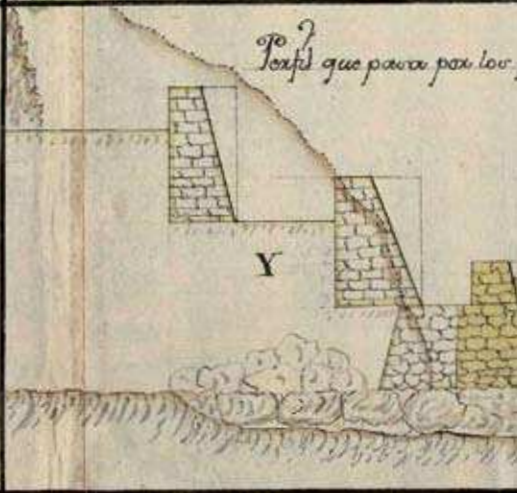 Perfil que pasa por los
Y